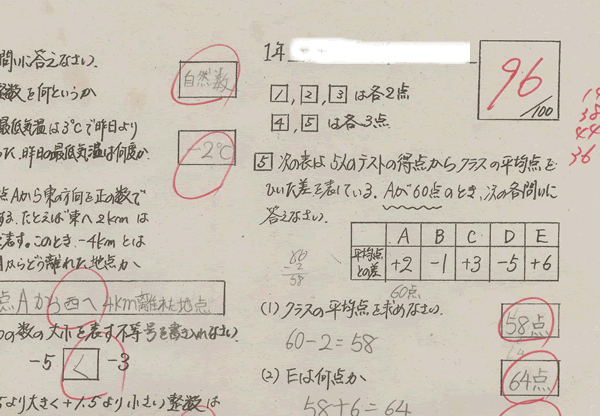 問いに答えなさい.
整数を何というか
自然数
最低気温は3℃で昨日より
った.昨日の最低気温は何度か.
-2℃
点Aから東の方向を正の数で
する.たとえば東へ2kmは
表す.このとき.-4kmとは
Aからどう離れた地点か
点Aから西へ4km離れた地点
の数の大小を表す不等号を書き入れなさい.
-5 < -3
より大きく+1.5より小さい整数は
1年
96
/100
1, 2, 3 は各2点
4, 5 は各3点
38
44
36
5 次の表は5人のテストの得点からクラスの平均点を
ひいた差を表している.Aが60点のとき,次の各問いに
答えなさい.
A B C D E
平均点との差 +2 -1 +3 -5 +6
60点
60
-2
58
(1) クラスの平均点を求めなさい.
60-2=58
58点
(2) Eは何点か
58+6=64
64点